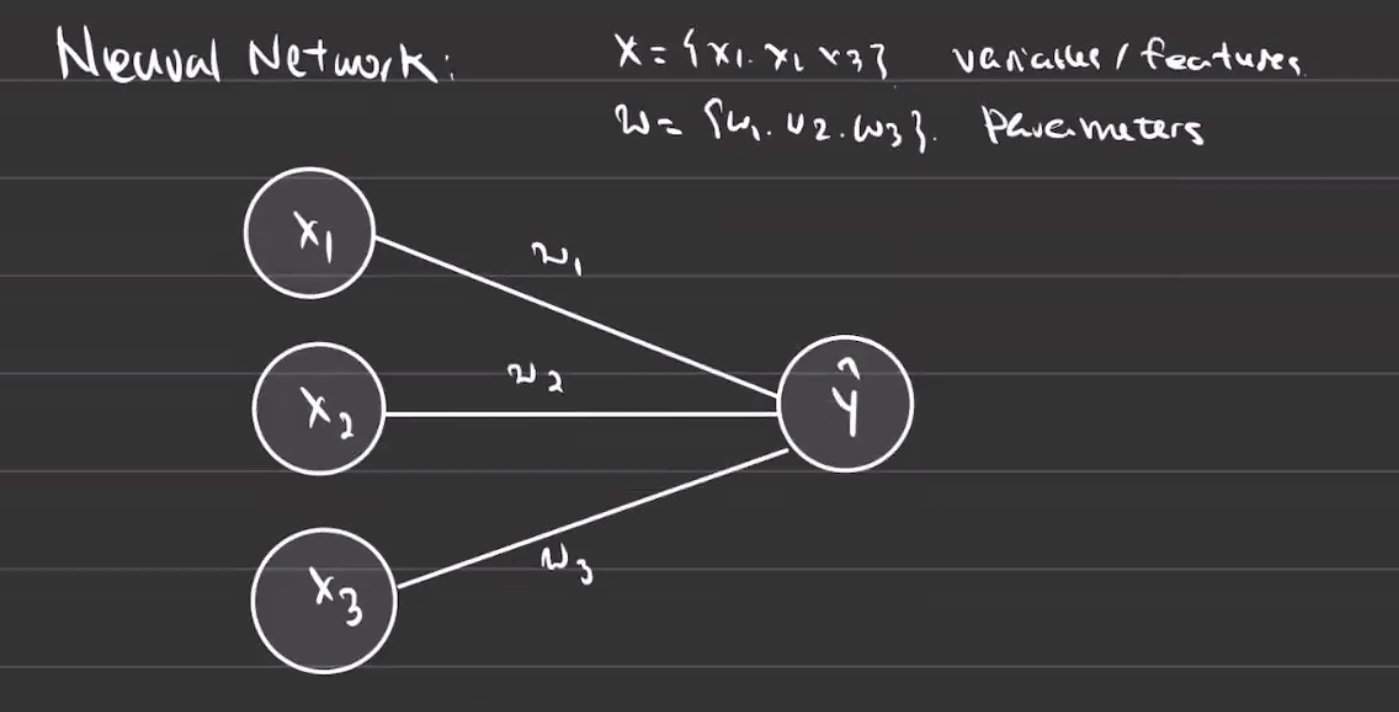 Neural Network: x = {x1. x2 x3} variables / features.
w = {w1. w2. w3}. Parameters
x1
w1
w2
ŷ
x2
w3
x3